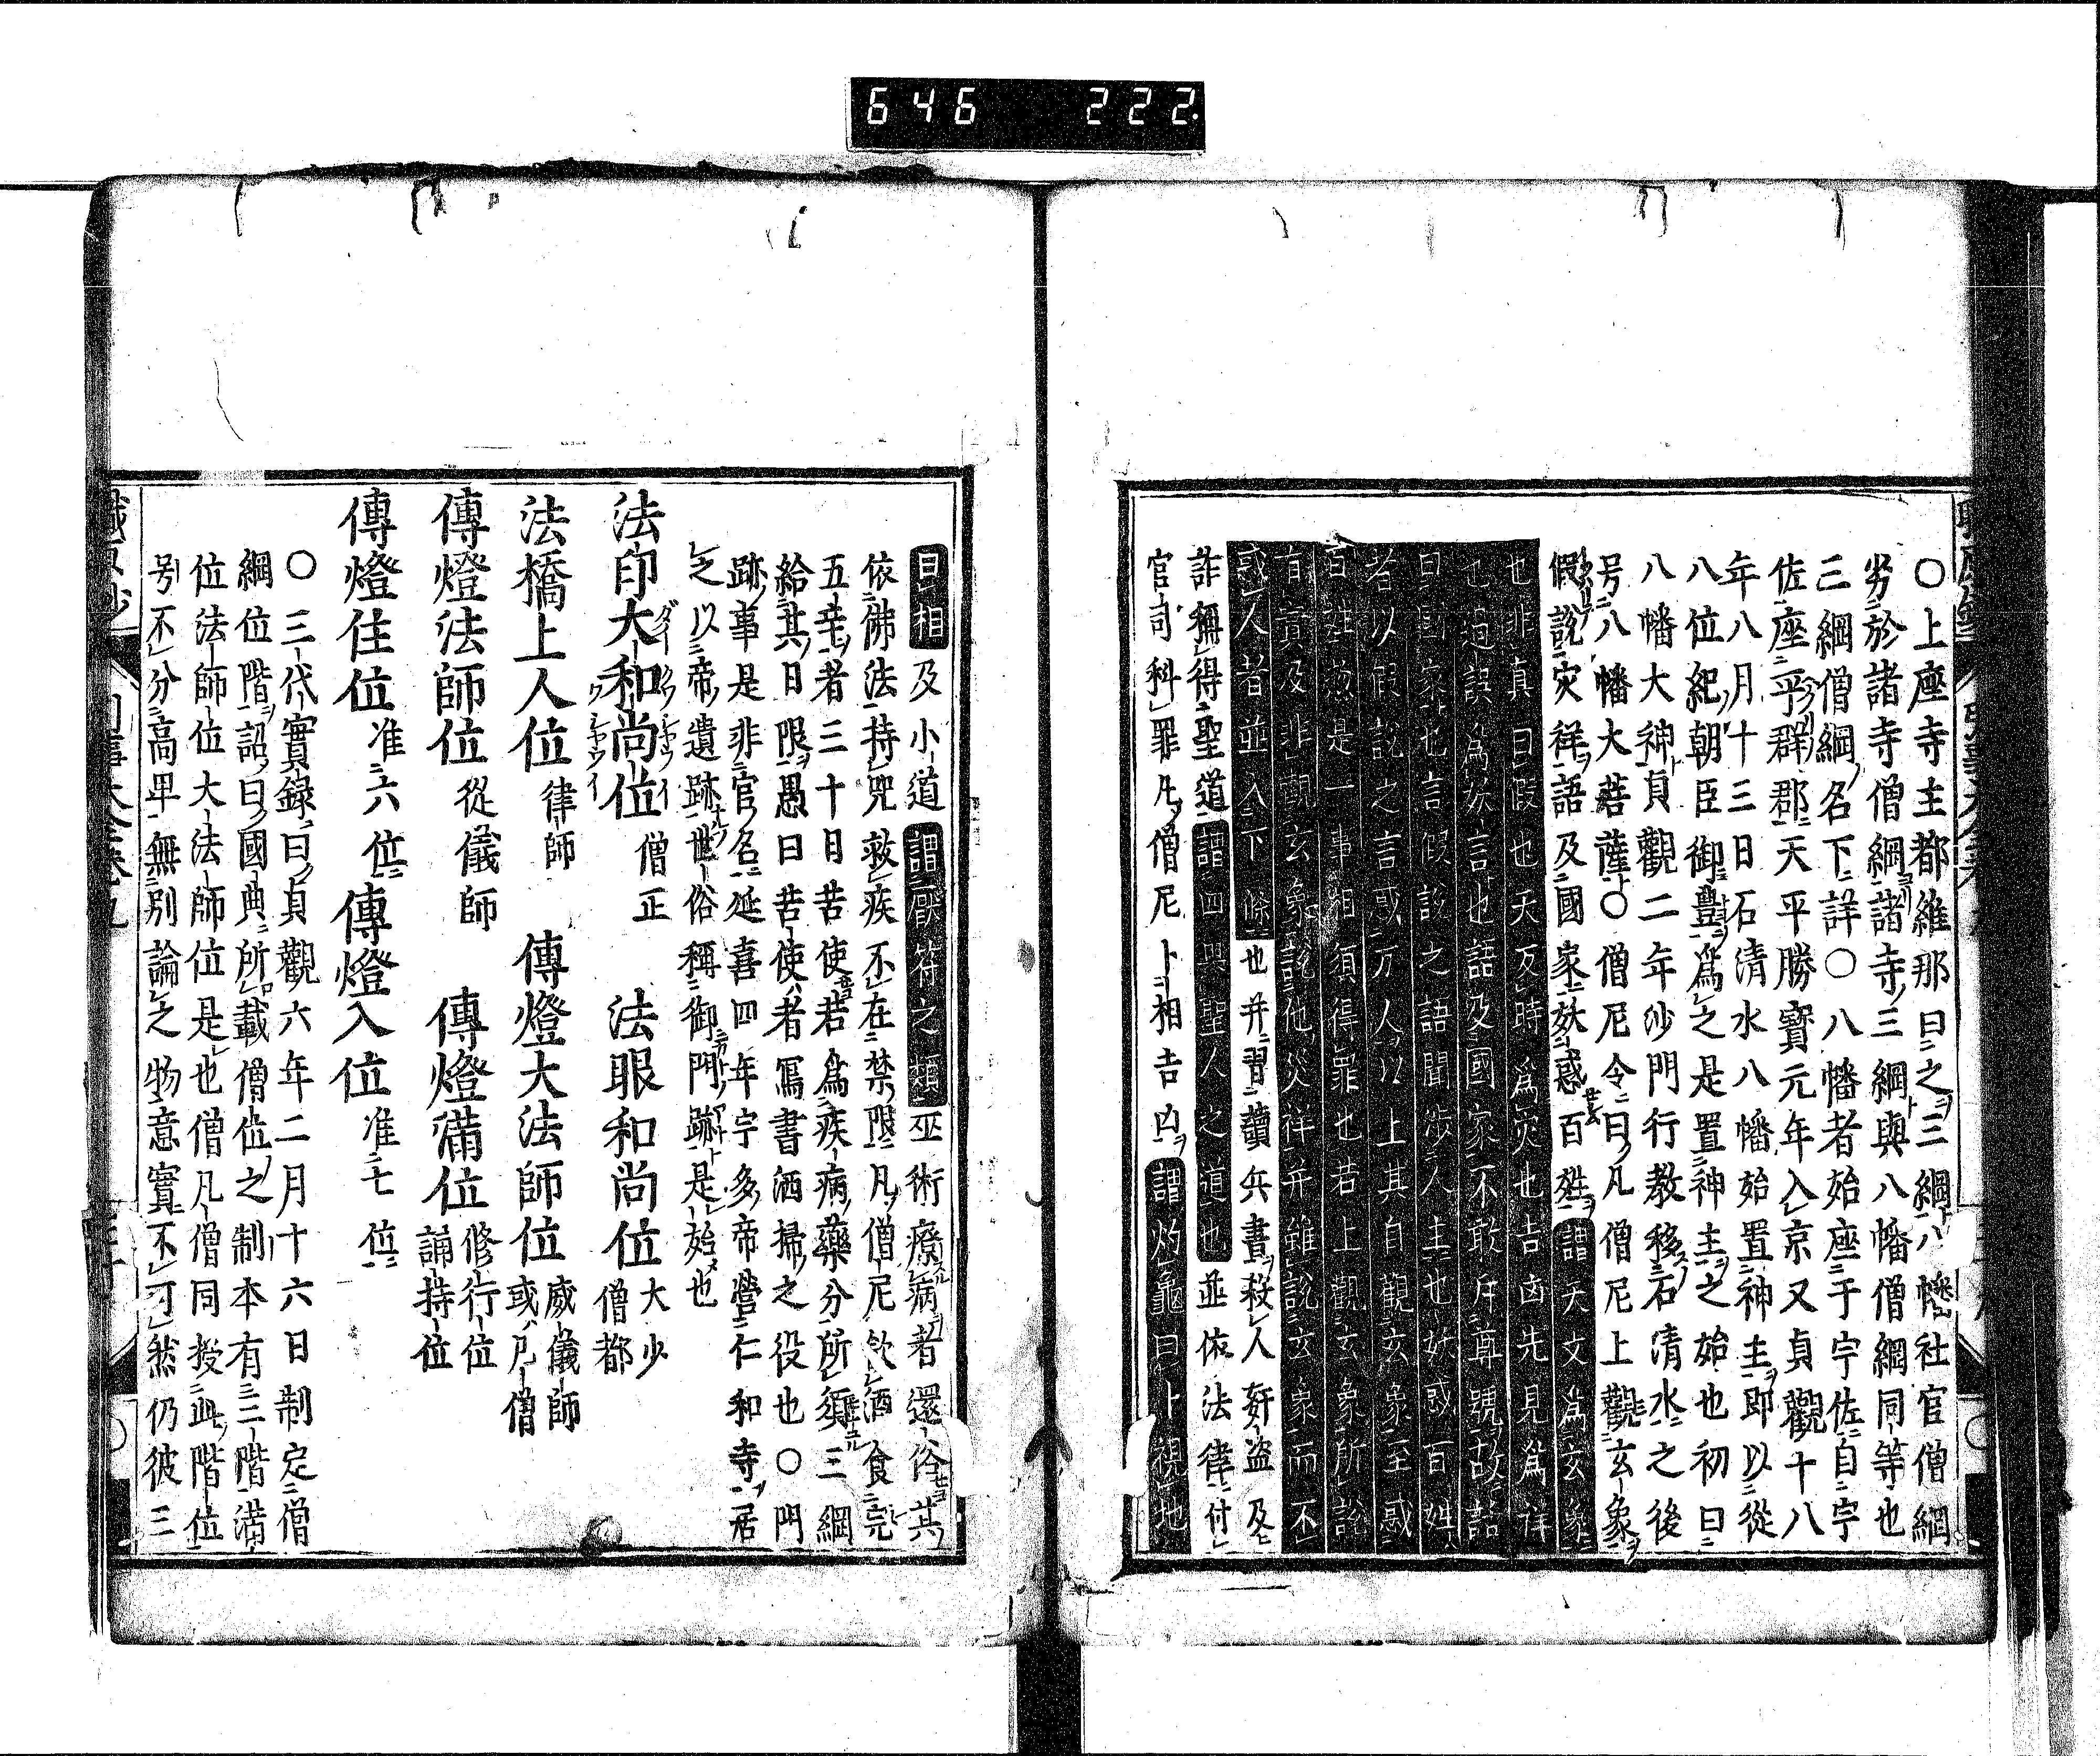 646 222.
〇上座寺主都維那曰之三綱八幡社官僧綱
劣於諸寺僧綱諸寺三綱與八幡僧綱同等也
三綱僧綱名下詳〇八幡者始座于宇佐自宇
佐座平群郡天平勝寶元年入京又貞觀十八
年八月十三日石清水八幡始置神主即以從
八位紀朝臣御豊爲之是置神主之始也初曰
八幡大神貞觀二年沙門行教移石清水之後
号八幡大菩薩〇僧尼令曰凡僧尼上觀玄象
假說灾祥語及國家妖惑百姓謂天文爲玄象
也非真曰假也天反時爲灾也吉凶先見爲祥
也過誤爲妖言也語及國家不敢斥尊號故詔
曰國家也言假說之語聞涉人主也妖惑百姓
者以假說之言惑万人以上其自觀玄象至惑
百姓惣是一事相須得罪也若上觀玄象所說
有實及非觀玄象說他災祥并雖說玄象而不
惑人者並入下條也并習讀兵書殺人奸盗及
詐稱得聖道謂四與聖人之道也並依法律付
官司科罪凡僧尼卜相吉凶謂灼龜曰卜視地
曰相及小道謂厭符之類巫術療病者還俗其
依佛法持咒救疾不在禁限凡僧尼飲酒食宍
五辛者三十日苦使若爲疾病藥分所須三綱
給其日限愚曰苦使者冩書洒掃之役也〇門
跡事是非官名延喜四年宇多帝營仁和寺居
之以帝遺跡世俗稱御門跡是始也
法印大和尚位 僧正 法眼和尚位 大少僧都
法橋上人位 律師 傳燈大法師位 威儀師或凡僧
傳燈法師位 從儀師 傳燈滿位 修行位誦持位
傳燈住位 准六位 傳燈入位 准七位
〇三代實録曰貞觀六年二月十六日制定僧
綱位階詔曰國典所載僧位之制本有三階滿
位法師位大法師位是也僧凡僧同授此階位
号不分高卑無別論之物意實不可然仍彼三